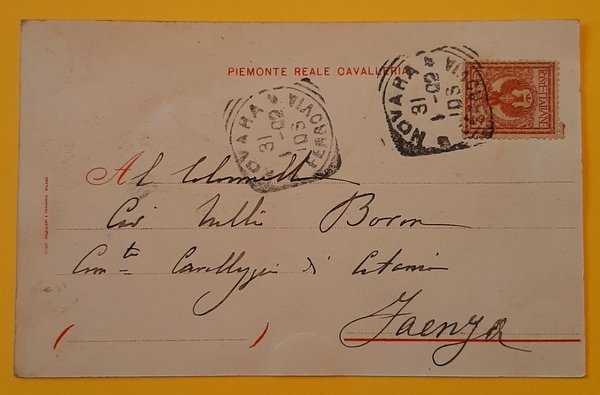 PIEMONTE REALE CAVALLERIA
NOVARA
FERROVIA
31
1-02
10S
NOVARA
FERROVIA
31
1-02
10S
POSTE ITALIANE
Al Colonnello
Cav Tullio
Com.te Cavalleggeri di
Faenza